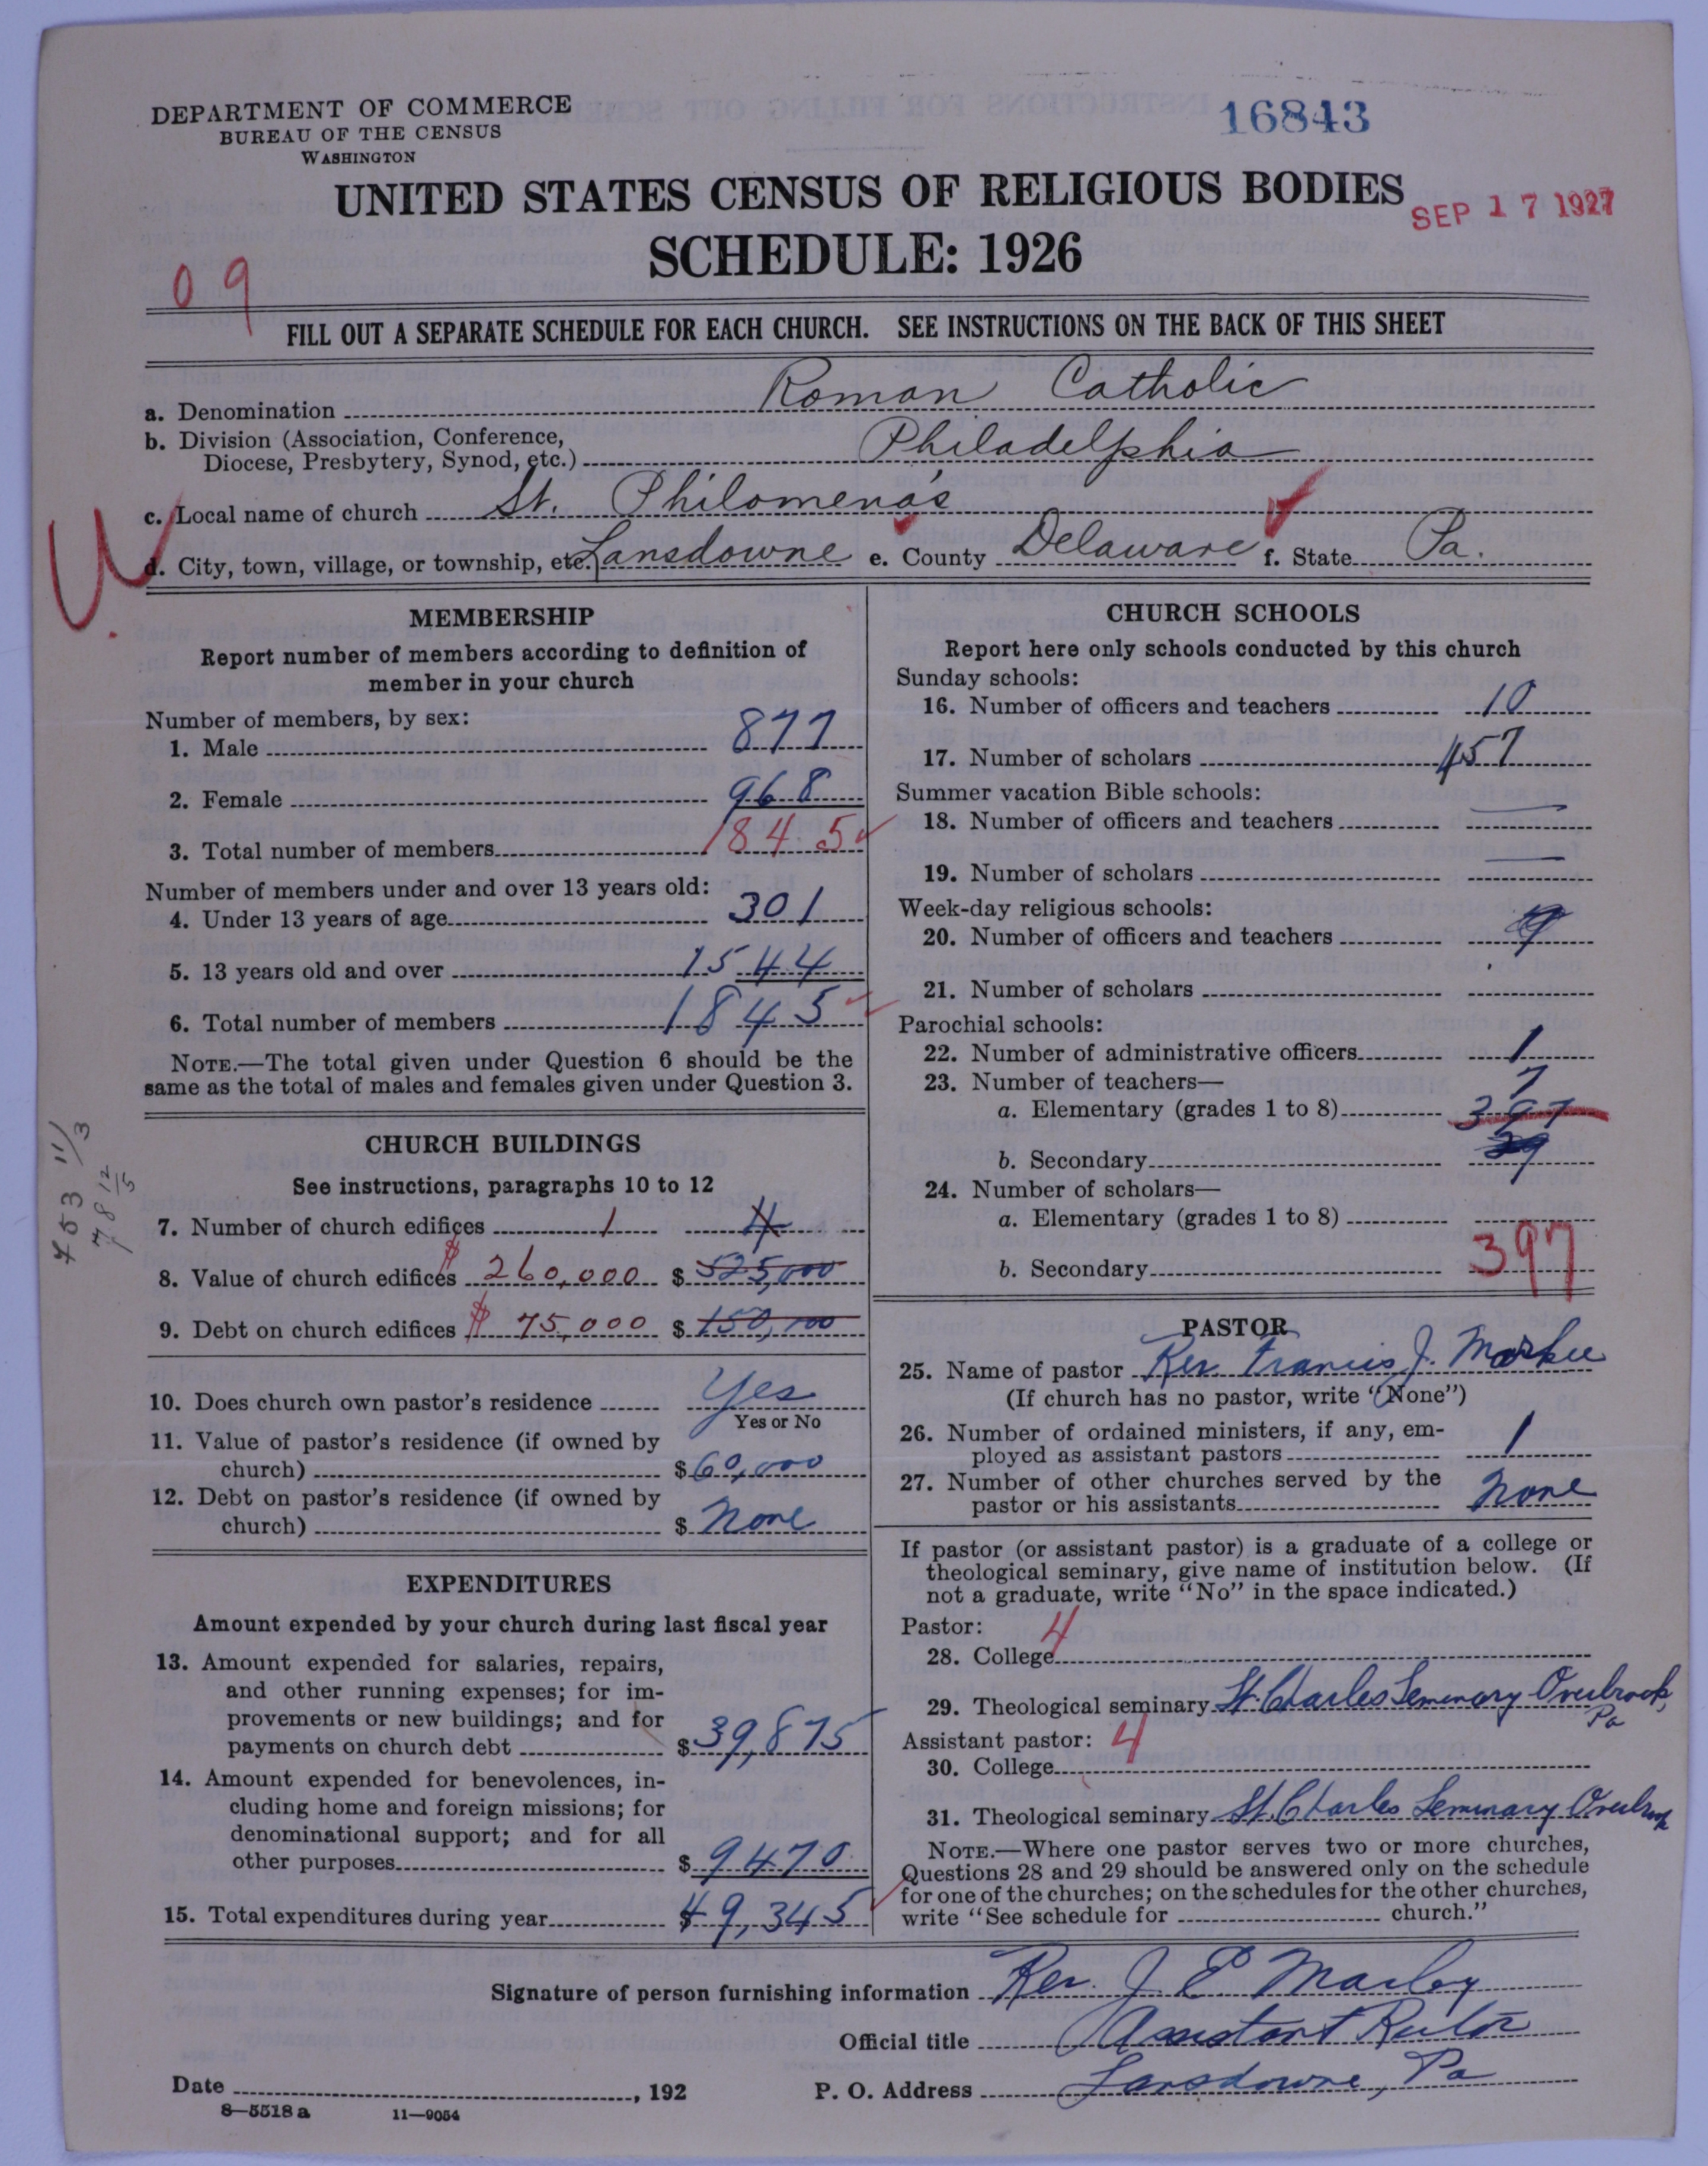 DEPARTMENT OF COMMERCE
BUREAU OF THE CENSUS
WASHINGTON
16843
UNITED STATES CENSUS OF RELIGIOUS BODIES
SEP 17 1927
SCHEDULE: 1926
09
FILL OUT A SEPARATE SCHEDULE FOR EACH CHURCH. SEE INSTRUCTIONS ON THE BACK OF THIS SHEET
a. Denomination Roman Catholic
b. Division (Association, Conference,
Diocese, Presbytery, Synod, etc.) Philadelphia
c. Local name of church St. Philomena's
d. City, town, village, or township, etc. Lansdowne e. County Delaware f. State Pa.
U.
MEMBERSHIP
Report number of members according to definition of
member in your church
Number of members, by sex:
1. Male 877
2. Female 968
3. Total number of members 1845
Number of members under and over 13 years old:
4. Under 13 years of age 301
5. 13 years old and over 1544
6. Total number of members 1845
NOTE.—The total given under Question 6 should be the
same as the total of males and females given under Question 3.
CHURCH BUILDINGS
See instructions, paragraphs 10 to 12
7. Number of church edifices 1 4
8. Value of church edifices $ 260,000 $ 525,000
9. Debt on church edifices $ 75,000 $ 150,000
10. Does church own pastor's residence Yes
Yes or No
11. Value of pastor's residence (if owned by
church) $ 60,000
12. Debt on pastor's residence (if owned by
church) $ None
EXPENDITURES
Amount expended by your church during last fiscal year
13. Amount expended for salaries, repairs,
and other running expenses; for im-
provements or new buildings; and for
payments on church debt $ 39,875
14. Amount expended for benevolences, in-
cluding home and foreign missions; for
denominational support; and for all
other purposes $ 9470
15. Total expenditures during year $ 49,345
CHURCH SCHOOLS
Report here only schools conducted by this church
Sunday schools:
16. Number of officers and teachers 10
17. Number of scholars 457
Summer vacation Bible schools:
18. Number of officers and teachers —
19. Number of scholars —
Week-day religious schools:
20. Number of officers and teachers
21. Number of scholars
Parochial schools:
22. Number of administrative officers 1
23. Number of teachers— 7
a. Elementary (grades 1 to 8) 397
b. Secondary
24. Number of scholars—
a. Elementary (grades 1 to 8)
397
b. Secondary
PASTOR
25. Name of pastor Rev. Francis J. Markee
(If church has no pastor, write "None")
26. Number of ordained ministers, if any, em-
ployed as assistant pastors 1
27. Number of other churches served by the
pastor or his assistants None
If pastor (or assistant pastor) is a graduate of a college or
theological seminary, give name of institution below. (If
not a graduate, write "No" in the space indicated.)
Pastor: 4
28. College
29. Theological seminary St. Charles Seminary Overbrook,
Pa
Assistant pastor: 4
30. College
31. Theological seminary St. Charles Seminary Overbrook
NOTE.—Where one pastor serves two or more churches,
Questions 28 and 29 should be answered only on the schedule
for one of the churches; on the schedules for the other churches,
write "See schedule for church."
Signature of person furnishing information Rev. J. E.
Official title Assistant Rector
Date , 192 P. O. Address Lansdowne, Pa
8—5518 a 11—9054